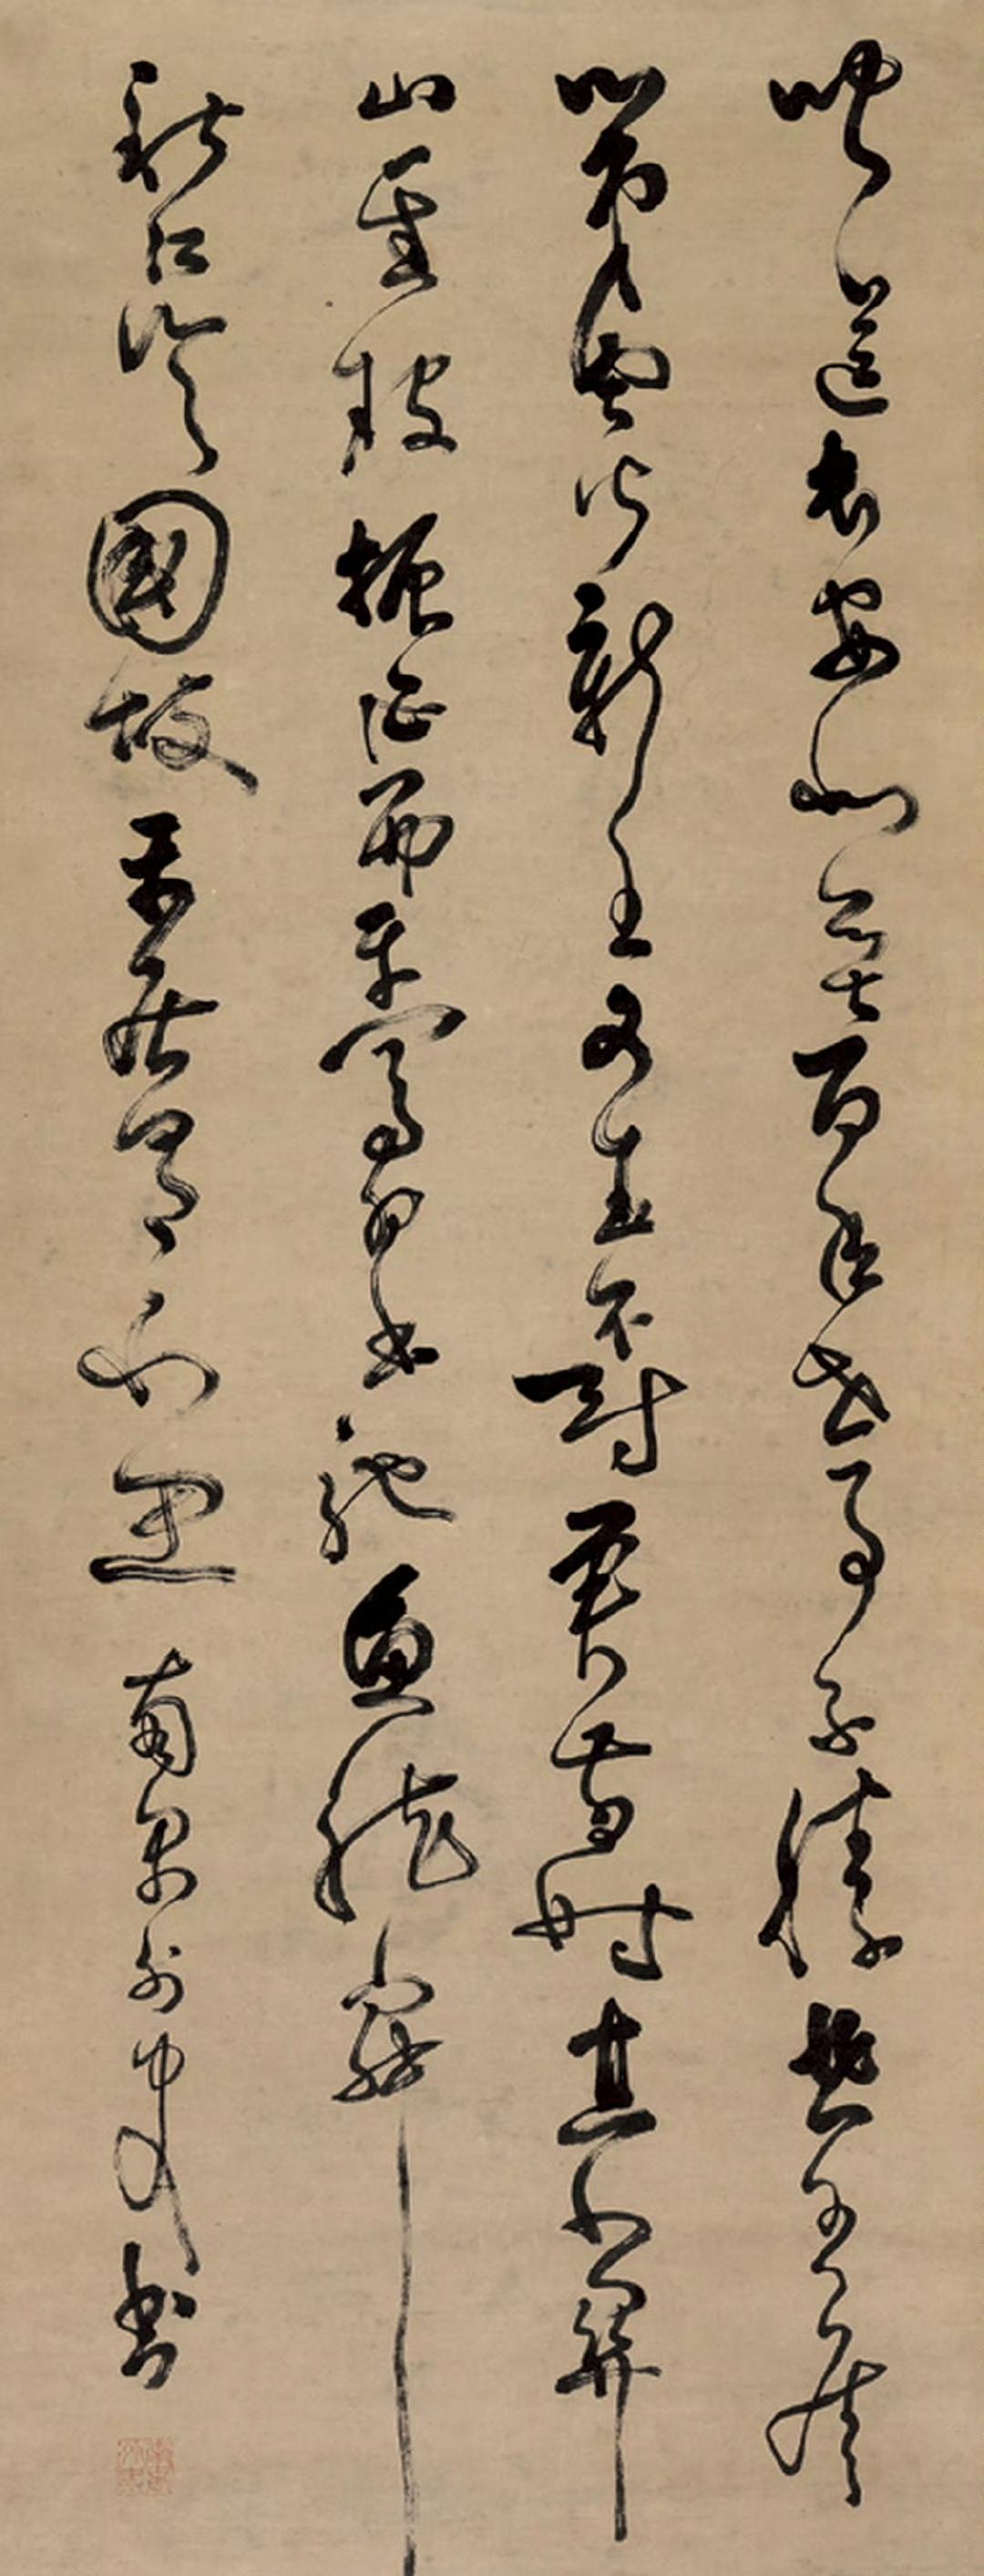 聞道長安似弈棋百年世事不勝悲王侯
第宅皆新主文武衣冠異昔時直北關
山金鼓振征西車馬羽書馳魚龍寂寞
秋江冷故國平居有所思 南禺外史書